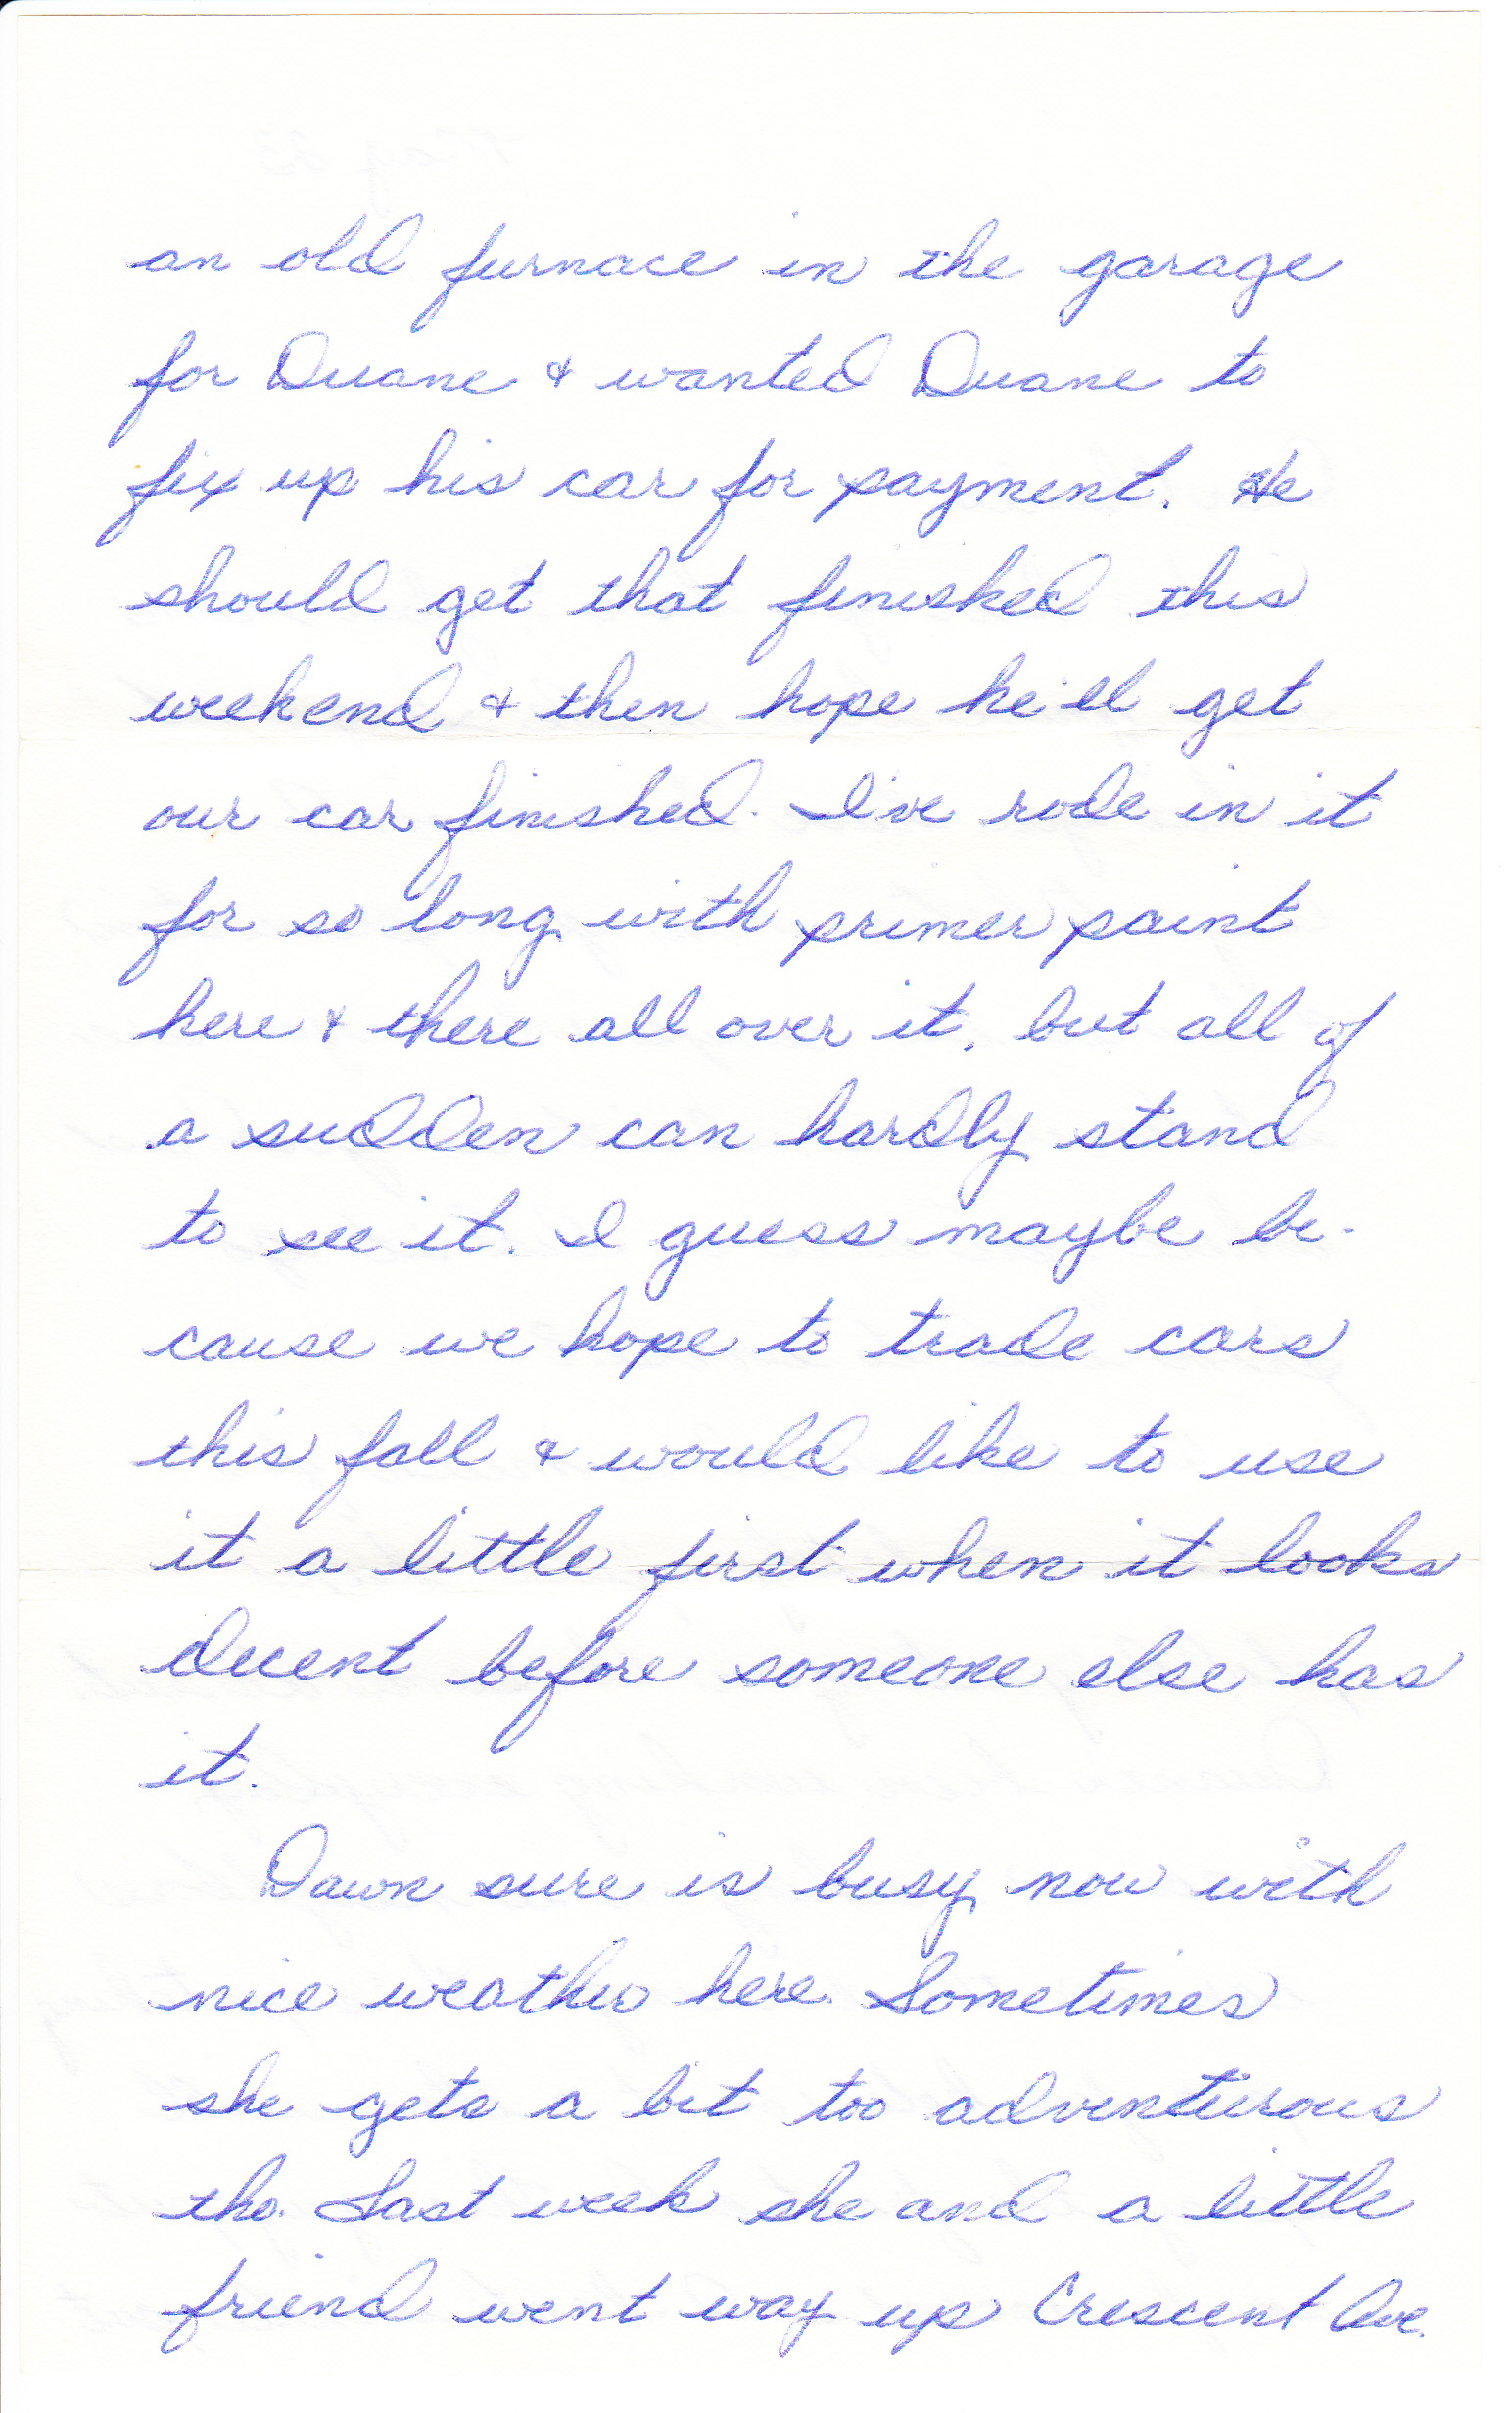 an old furnace in the garage
for Duane & wanted Duane to
fix up his car for payment. He
should get that finished this
weekend & then hope he'll get
our car finished. I've rode in it
for so long with primer paint
here & there all over it, but all of
a sudden can hardly stand
to see it. I guess maybe be-
cause we hope to trade cars
this fall & would like to use
it a little first when it looks
decent before someone else has
it.
Dawn sure is busy now with
nice weather here. Sometimes
she gets a bit too adventurous
tho. Last week she and a little
friend went way up Crescent Ave.